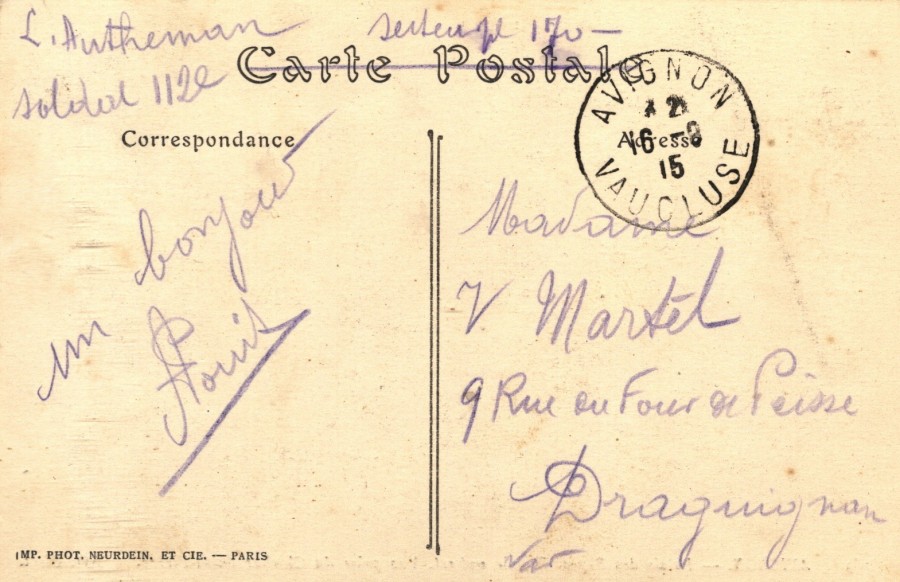 L. Autheman
soldat 112e
secteur pl 170 —
Carte Postale
Correspondance
Adresse
AVIGNON
* 2
16 - 9
15
VAUCLUSE
un bonjour
Louis
Madame
V Martel
9 Rue du Four de Peisse
Draguignan
Var
IMP. PHOT. NEURDEIN. ET CIE. — PARIS